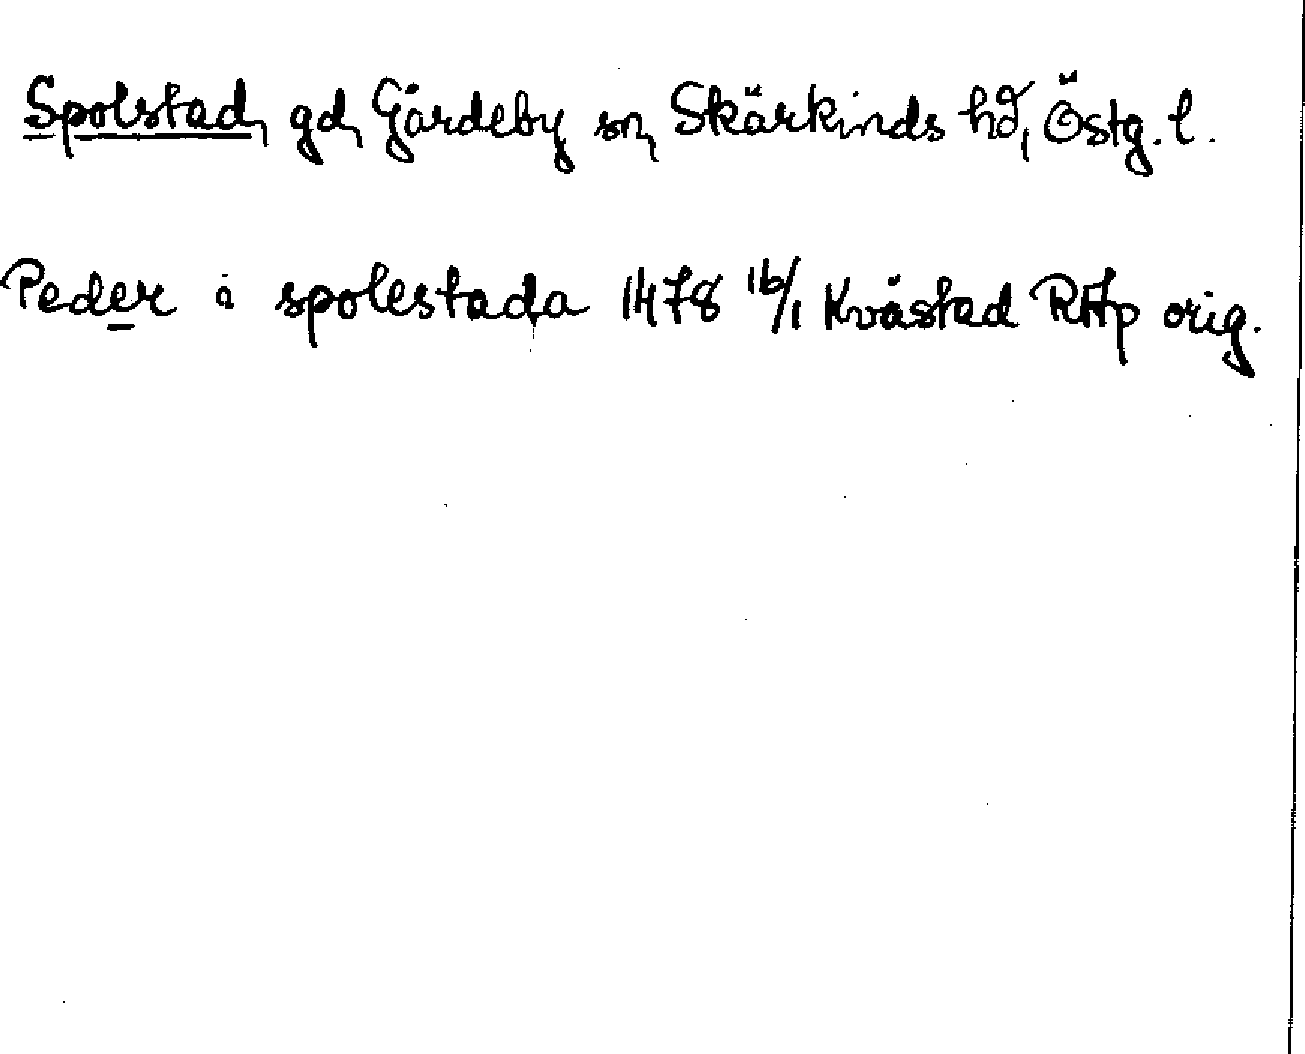 Spolstad, gd, Gårdeby sn, Skärkinds hd, Östg. l.
Peder i spolestada 1478 16/1 Kvåstad RAp orig.